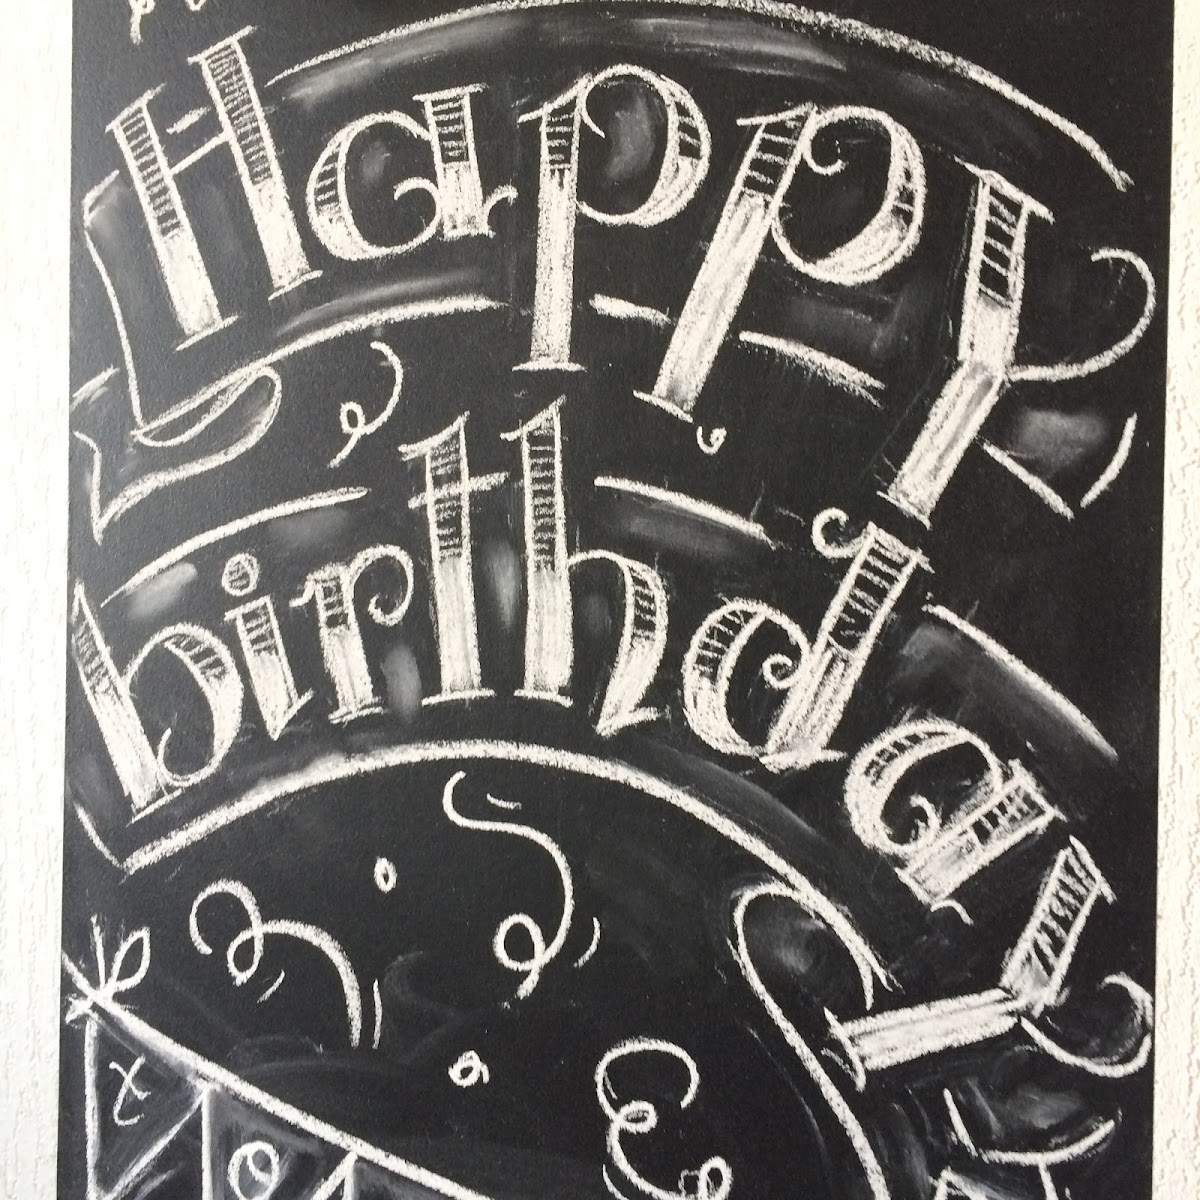 Happy
birthday
x o